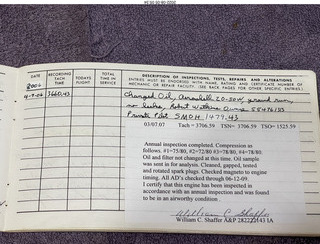 DATE
RECORDING TACH TIME
TODAYS FLIGHT
TOTAL TIME IN SERVICE
DESCRIPTION OF INSPECTIONS, TESTS, REPAIRS AND ALTERATIONS
ENTRIES MUST BE ENDORSED WITH NAME, RATING AND CERTIFICATE NUMBER OF
MECHANIC OR REPAIR FACILITY. (SEE BACK PAGES FOR OTHER SPECIFIC ENTRIES.)
2006
4-9-06 3660.43 Changed Oil, Aeroshell 20-50W, ground run,
no leaks, Robert Watkins Owner
Private Pilot SMOH 1479.43
03/07.07 Tach = 3706.59 TSN= 3706.59 TSO= 1525.59
Annual inspection completed. Compression as
follows. #1=75/80, #2=72/80 #3=78/80, #4=78/80.
Oil and filter not changed at this time. Oil sample
was sent in for analysis. Cleaned, gapped, tested
and rotated spark plugs. Checked magneto to engine
timing. All AD's checked through 06-12-09.
I certify that this engine has been inspected
in accordance with an annual inspection and was found
to be in an airworthy condition.
William C. Shaffer
William C. Shaffer A&P IA